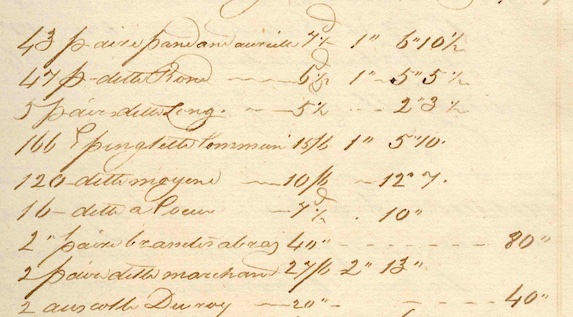 43 paire pandans aureille 7½d 1" 6"10½
47 p– ditto Rond 6½d 1" 5"5½
5 paires ditto Long. 5½ 2"3½
166 Epinglette Commun 15/6 1" 5"10.
120 ditto moyene 10/6 12"7.
16 – ditto a Coeur 7½d 10"
2" paire brandes a bras 40" 80"
2 paire ditto marchand 27/6 2" 13"
2 aus colle Du roy 20" 40"